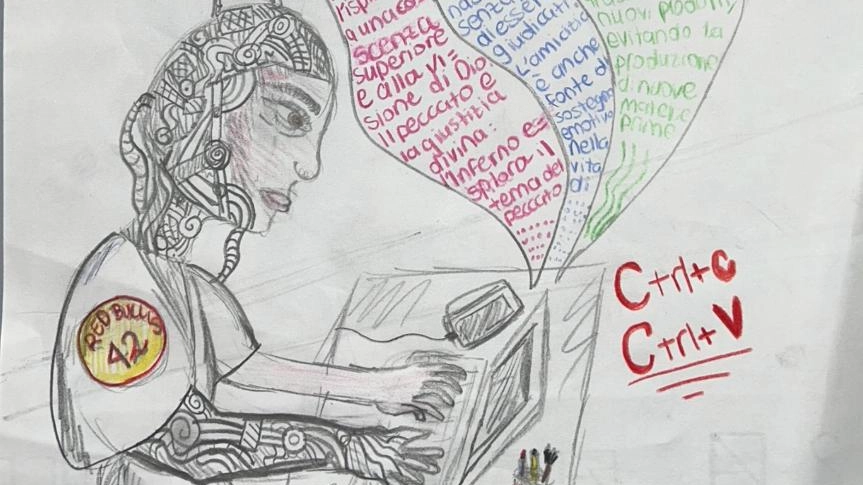 a una co
scenza
superiore
e alla vi=
sione di Dio
Il pecccato e
la giustitia
divina:
Inferno es=
splora il
tema del
peccato
senza
di esser
giudicati
L'amicitia
è anche
fonte di
sostegno
emotivo
nella
vita
di
nuovi prodotti,
evitando la
produzione
di nuove
materie
prime
RED BULLS
42
Ctrl+c
Ctrl+V